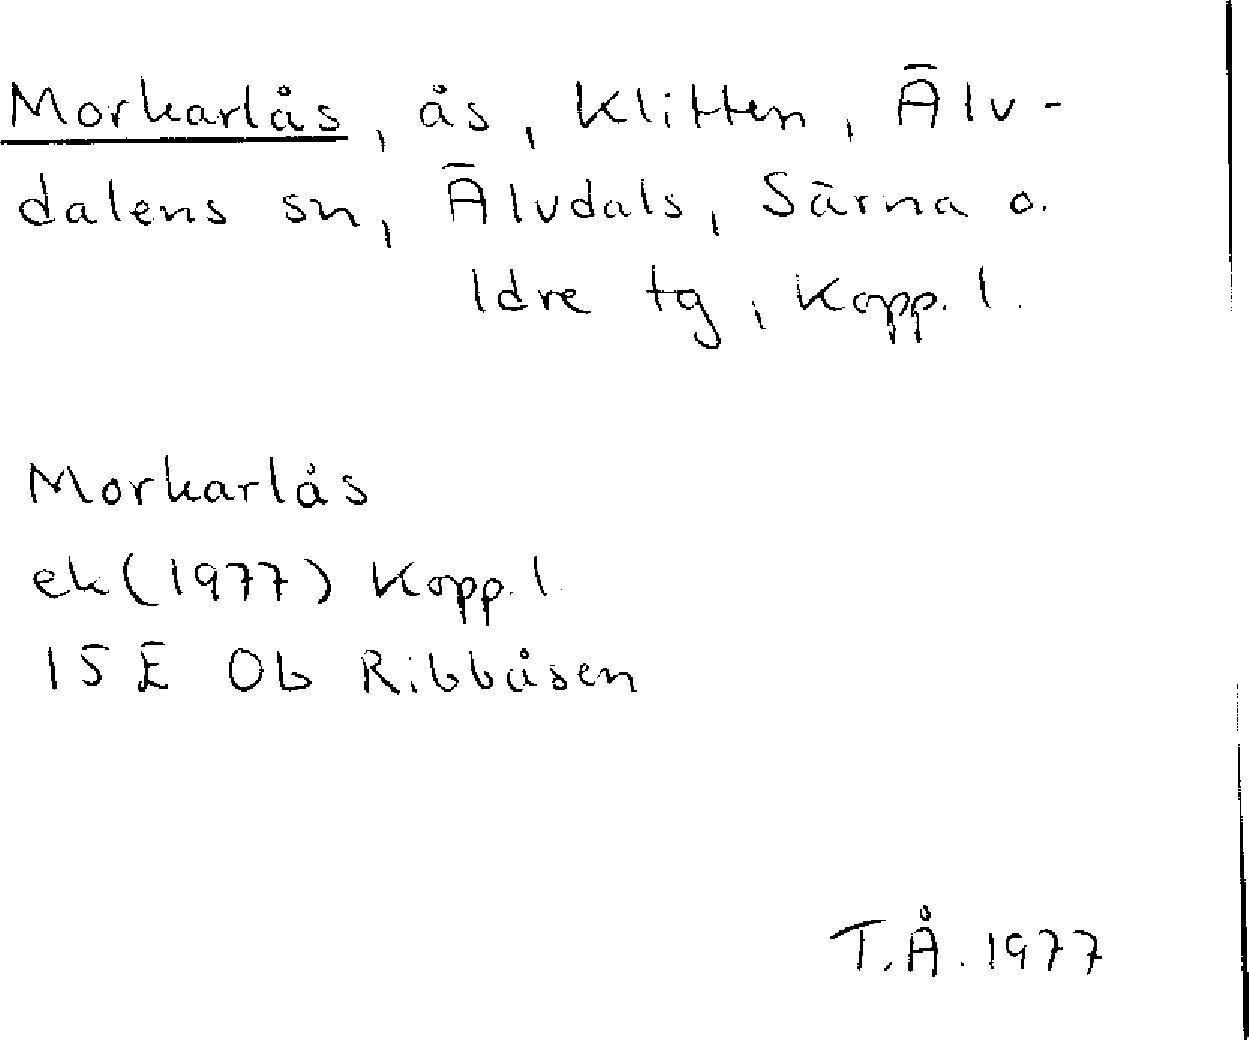 Morkarlås, ås, Klitten, Älv-
dalens sn, Älvdals, Särna o.
Idre tg, Kopp. l.
Morkarlås
ek (1977) Kopp. l.
15 E Ob Ribbåsen
T.Å. 1977